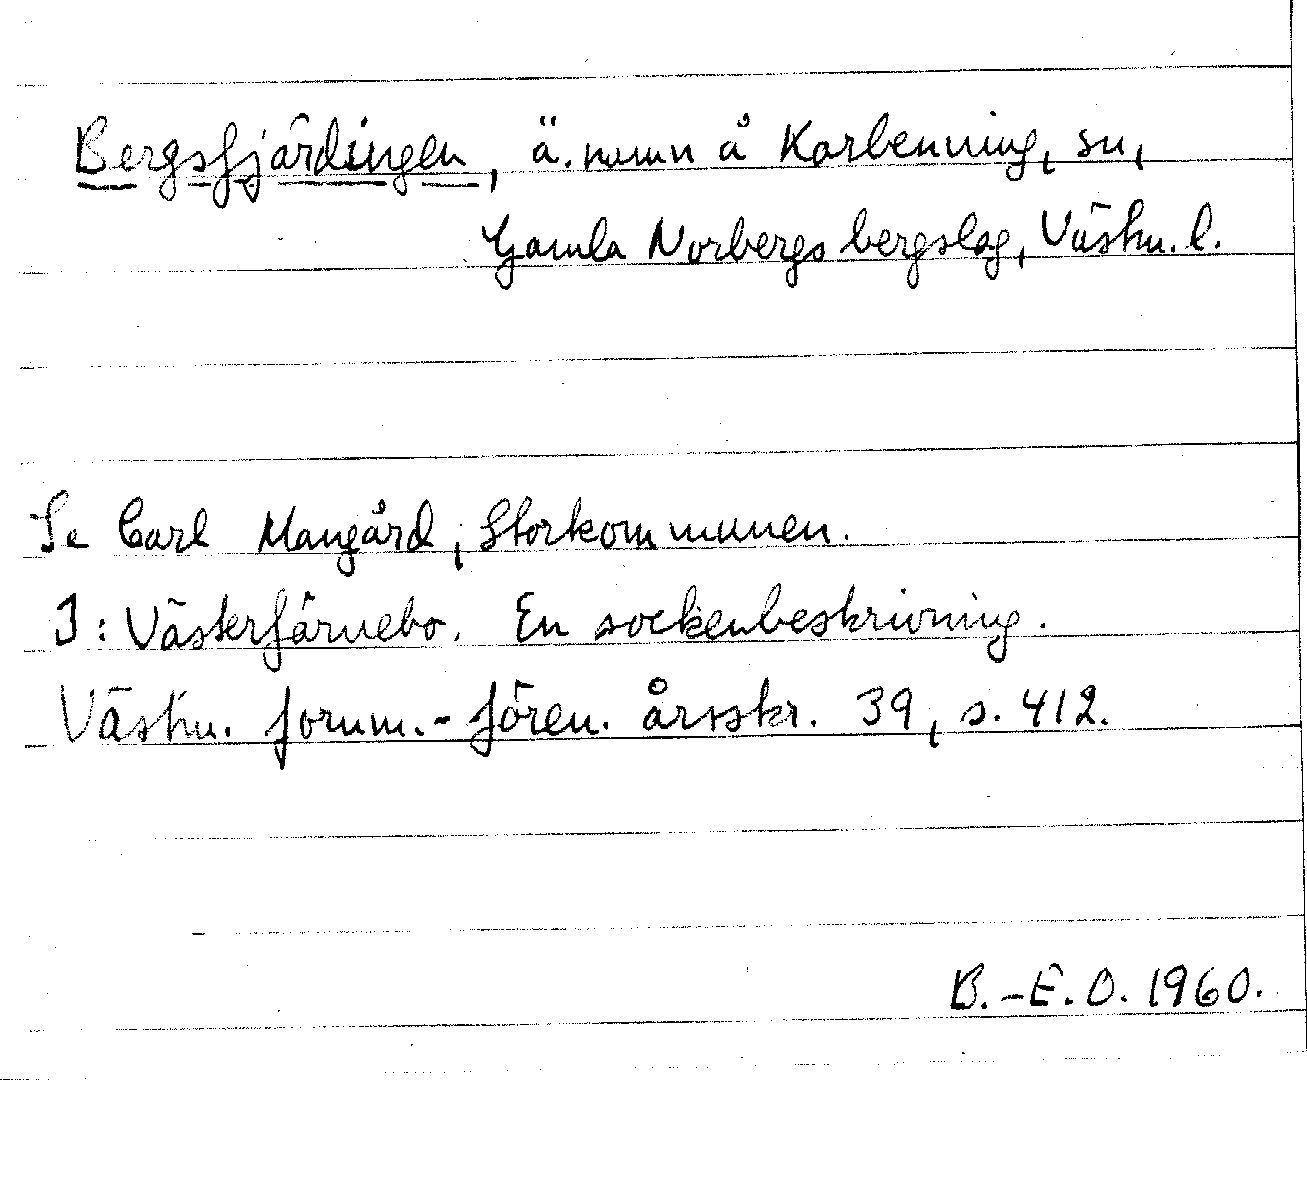 Bergsfjärdingen, ä. namn å Karbenning, sn,
Gamla Norbergs bergslag, Västm. l.
Se Carl Mangård, Storkommunen.
I: Västerfärnebo. En sockenbeskrivning.
Västm. fornm.-fören. årsskr. 39, s. 412.
B.-E. O. 1960.